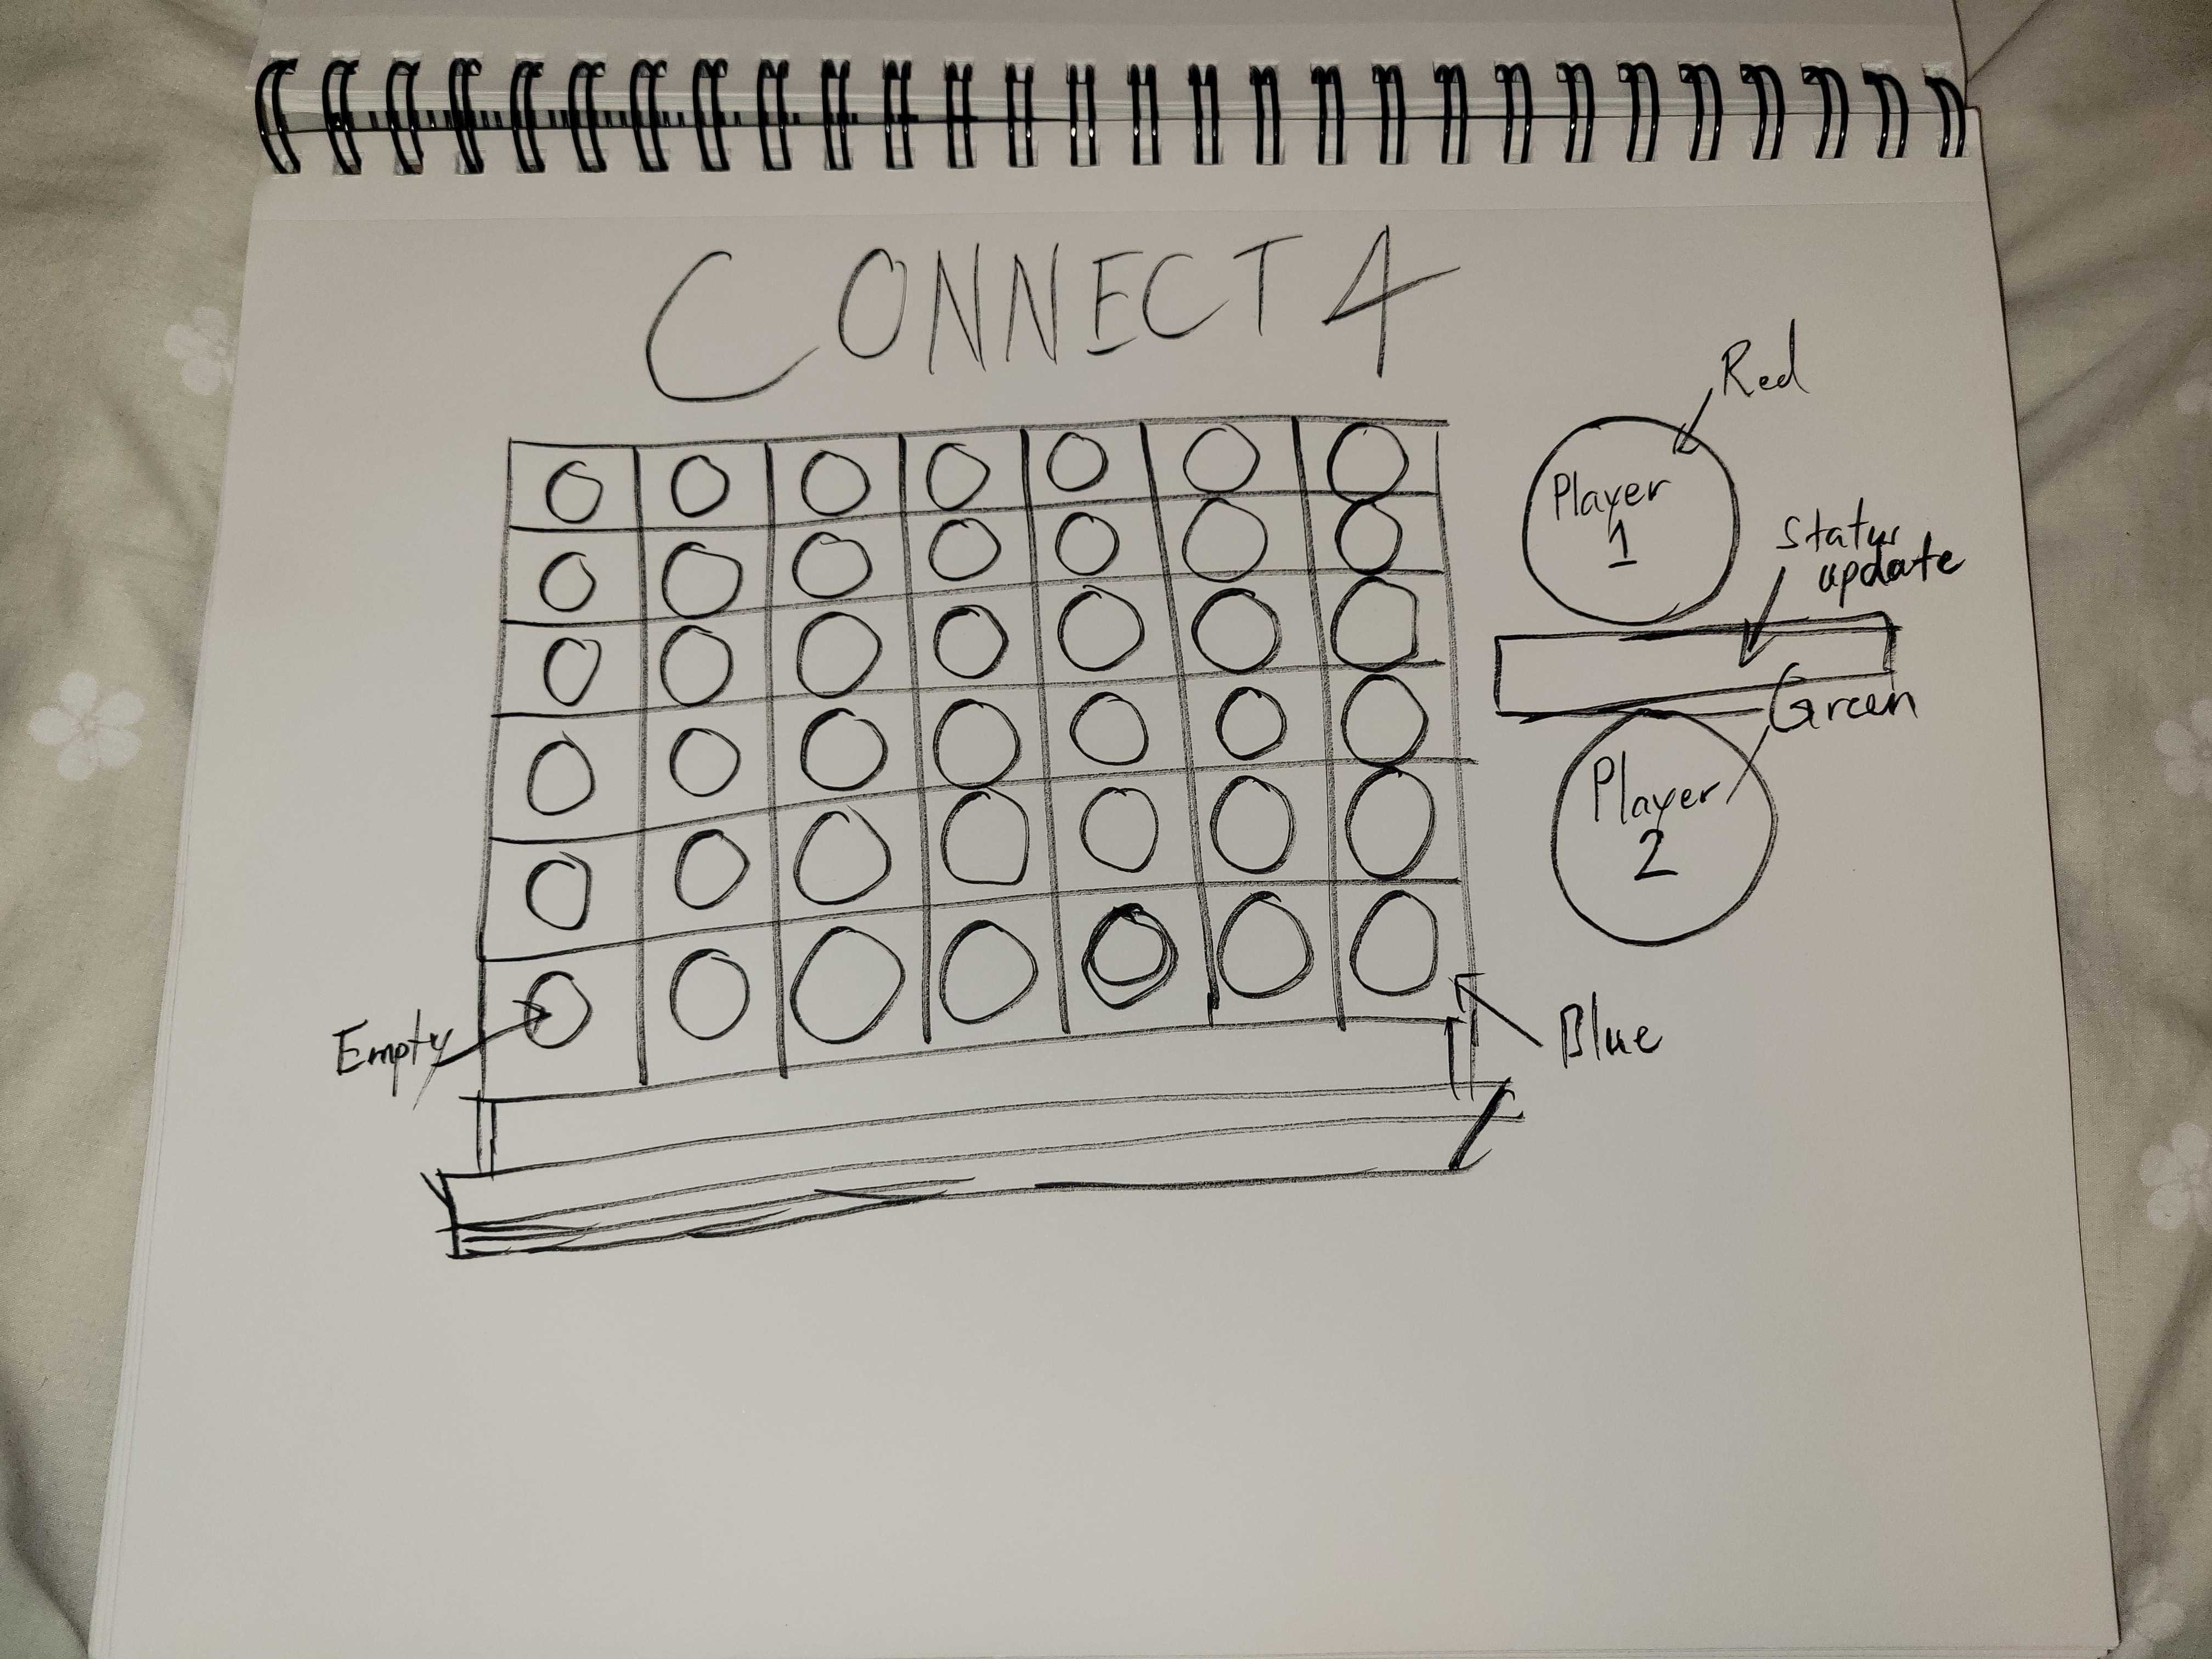 CONNECT 4
Red
Player
1
Status
update
Green
Player
2
Empty
Blue